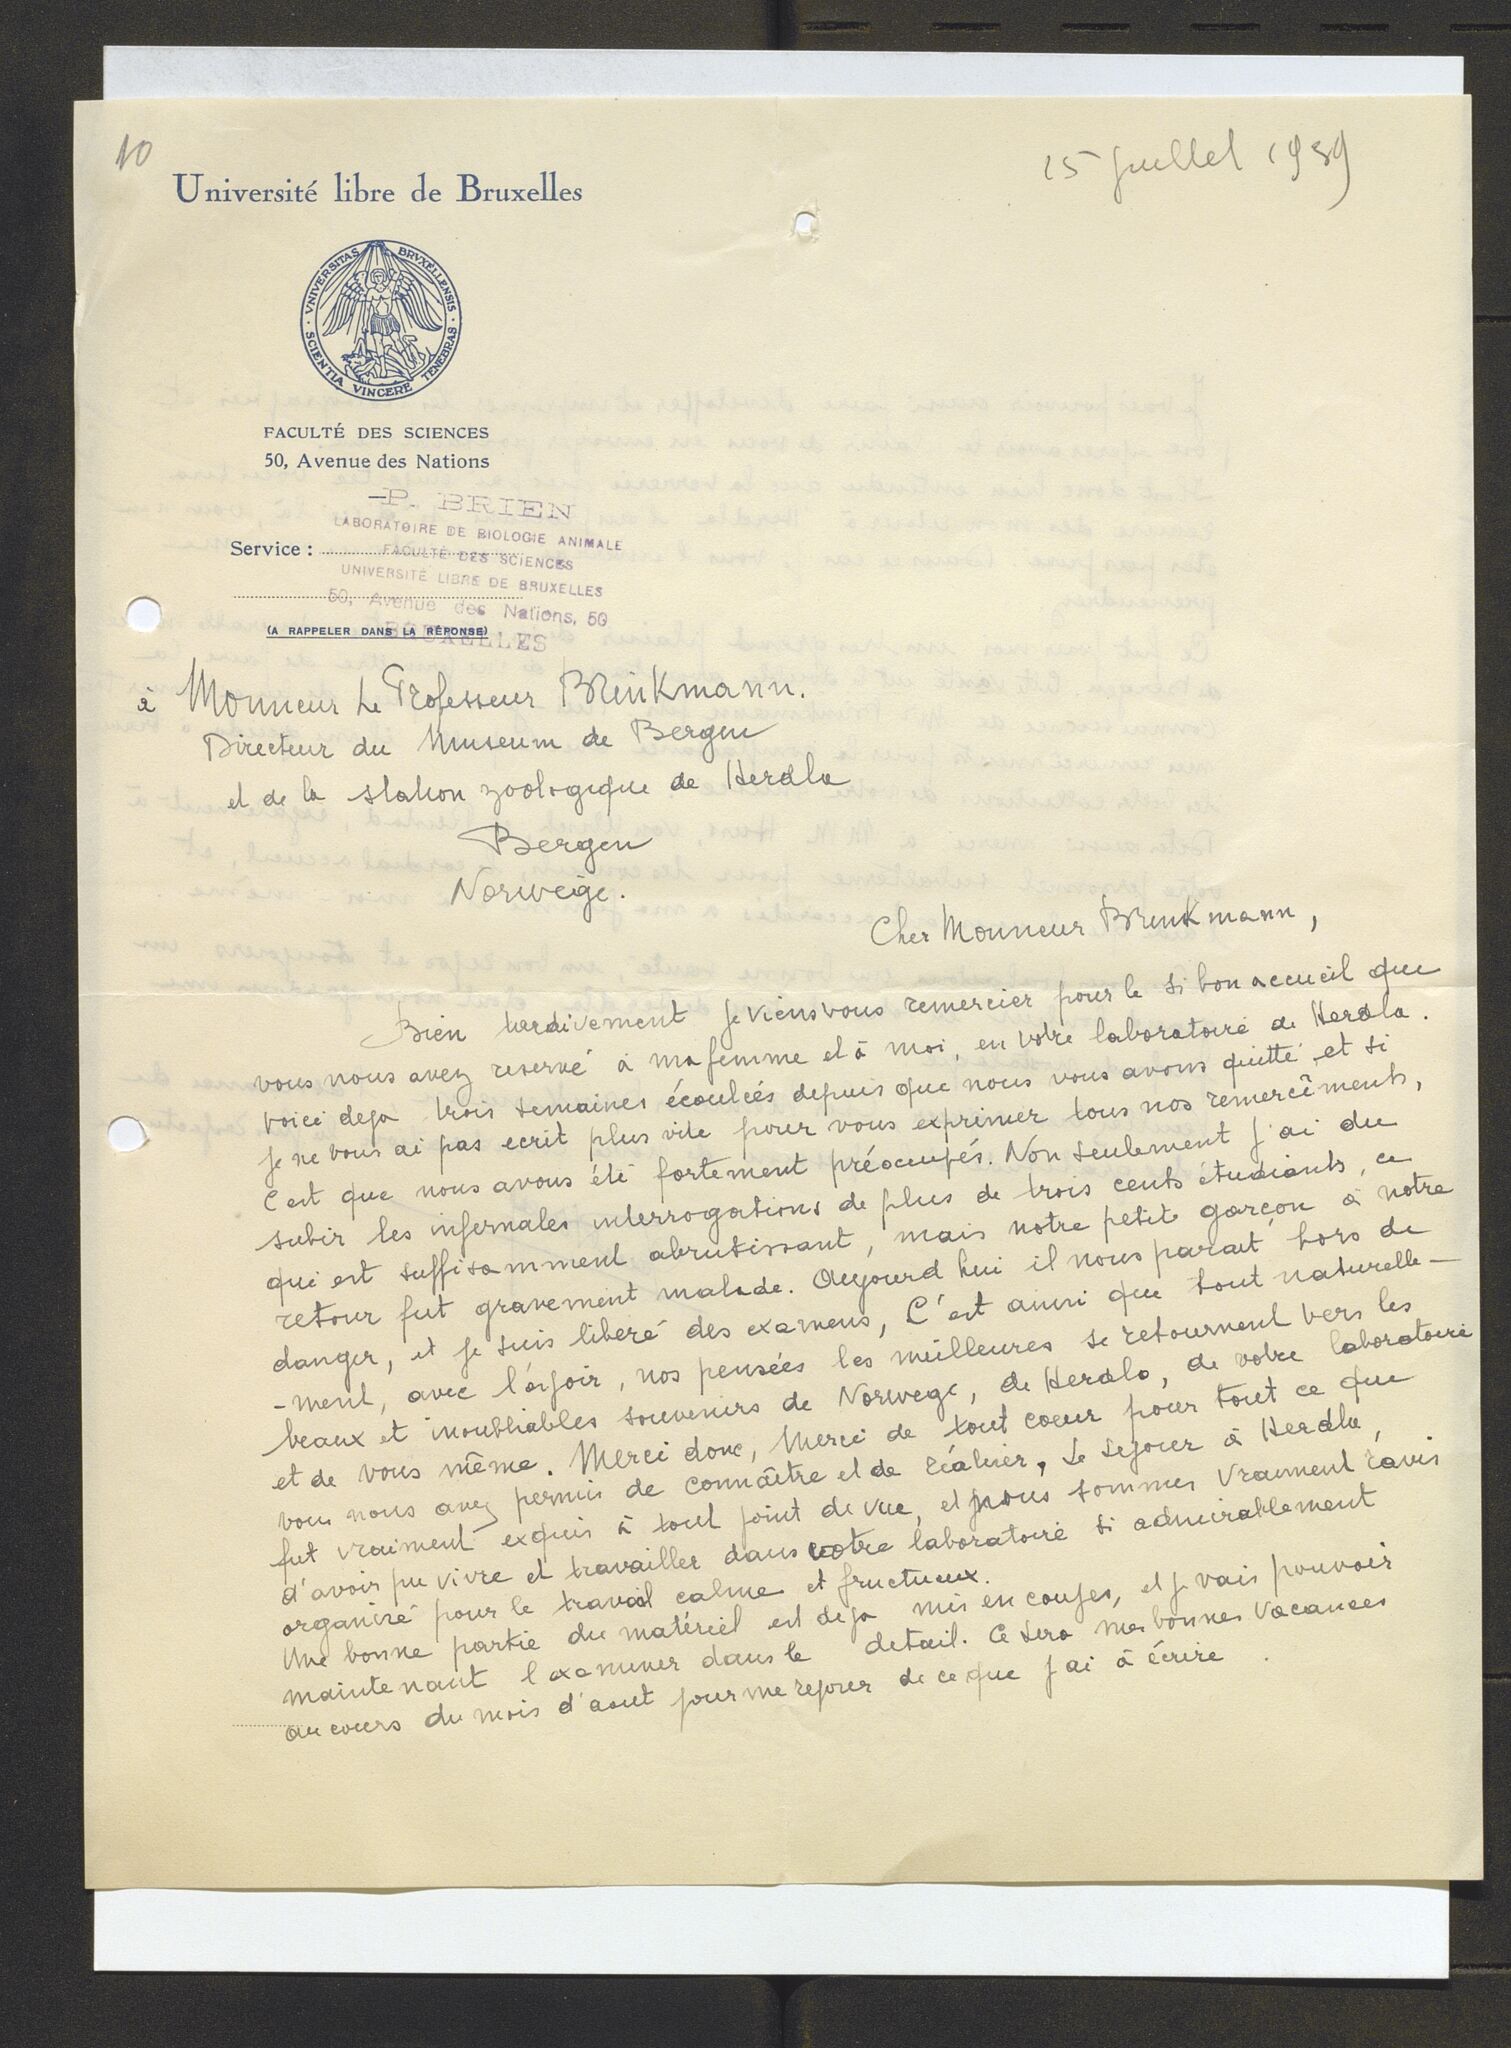 10
15 juillet 1939
Université libre de Bruxelles
UNIVERSITAS BRVXELLENSIS
SCIENTIA VINCERE TENEBRAS
FACULTÉ DES SCIENCES
50, Avenue des Nations
P. BRIEN
LABORATOIRE DE BIOLOGIE ANIMALE
Service :
FACULTÉ DES SCIENCES
UNIVERSITÉ LIBRE DE BRUXELLES
50, Avenue des Nations, 50
(A RAPPELER DANS LA RÉPONSE)
BRUXELLES
à Monsieur Le Professeur Brinkmann.
Directeur du Museum de Bergen
et de la station zoologique de Herdla
Bergen
Norweige.
Cher Monsieur Brinkmann,
Bien tardivement je viens vous remercier pour le si bon accueil que
vous nous avez reservé à ma femme et à moi, en votre laboratoire de Herdla.
Voici deja trois semaines écoulées depuis que nous vous avons quitté et si
je ne vous ai pas ecrit plus vite pour vous exprimer tous nos remercîments,
c'est que nous avons été fortement préocupés. Non seulement j'ai du
subir les infernales interrogations de plus de trois cents étudiants, ce
qui est suffisamment abrutissant, mais notre petit garçon à notre
retour fut gravement malade. Aujourd'hui il nous parait hors de
danger, et je suis liberé des examens, C'est ainsi que tout naturelle-
-ment, avec l'espoir, nos pensées les meilleures se retournent vers les
beaux et inoubliables souvenirs de Norwege, de Herdla, de votre laboratoire
et de vous même. Merci donc, Merci de tout coeur pour tout ce que
vous nous avez permis de connaître et de réaliser. Le sejour à Herdla,
fut vraiment exquis à tout point de vue, et nous sommes vraiment ravis
d'avoir pu vivre et travailler dans votre laboratoire si admirablement
organisé pour le travail calme et fructueux.
Une bonne partie du matériel est deja mis en coupes, et je vais pouvoir
maintenant l'examiner dans le detail. Ce sera mes bonnes vacances
au cours du mois d'aout pour me reposer de ce que j'ai à écrire.